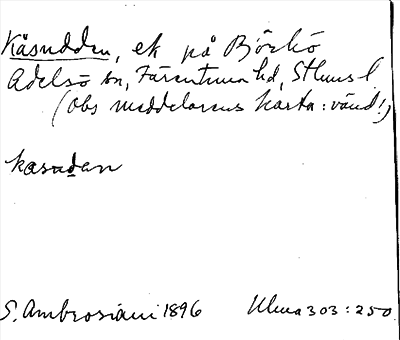 Kåsudden, ek på Björkö
Adelsö sn, Färentuna hd, Sthms l.
(obs meddelarens karta: vänd!)
kasudan
S. Ambrosiani 1896 Ulma 303:250